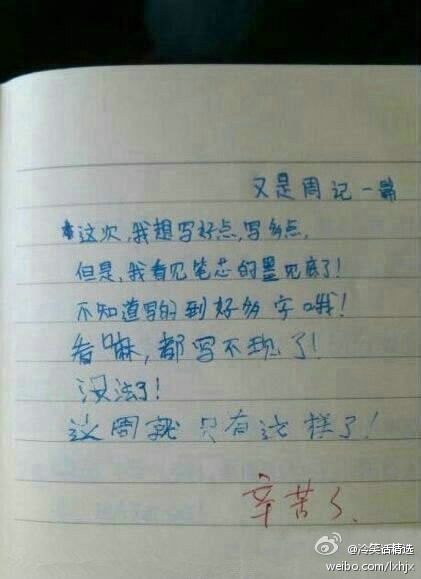 又是周记一篇
这次,我想写好点,写多点,
但是,我看见笔芯的墨见底了!
不知道写的到好多字哦!
看嘛,都写不现了!
没法了!
这周就只有这样了!
辛苦了、
@冷笑话精选
weibo.com/lxhjx